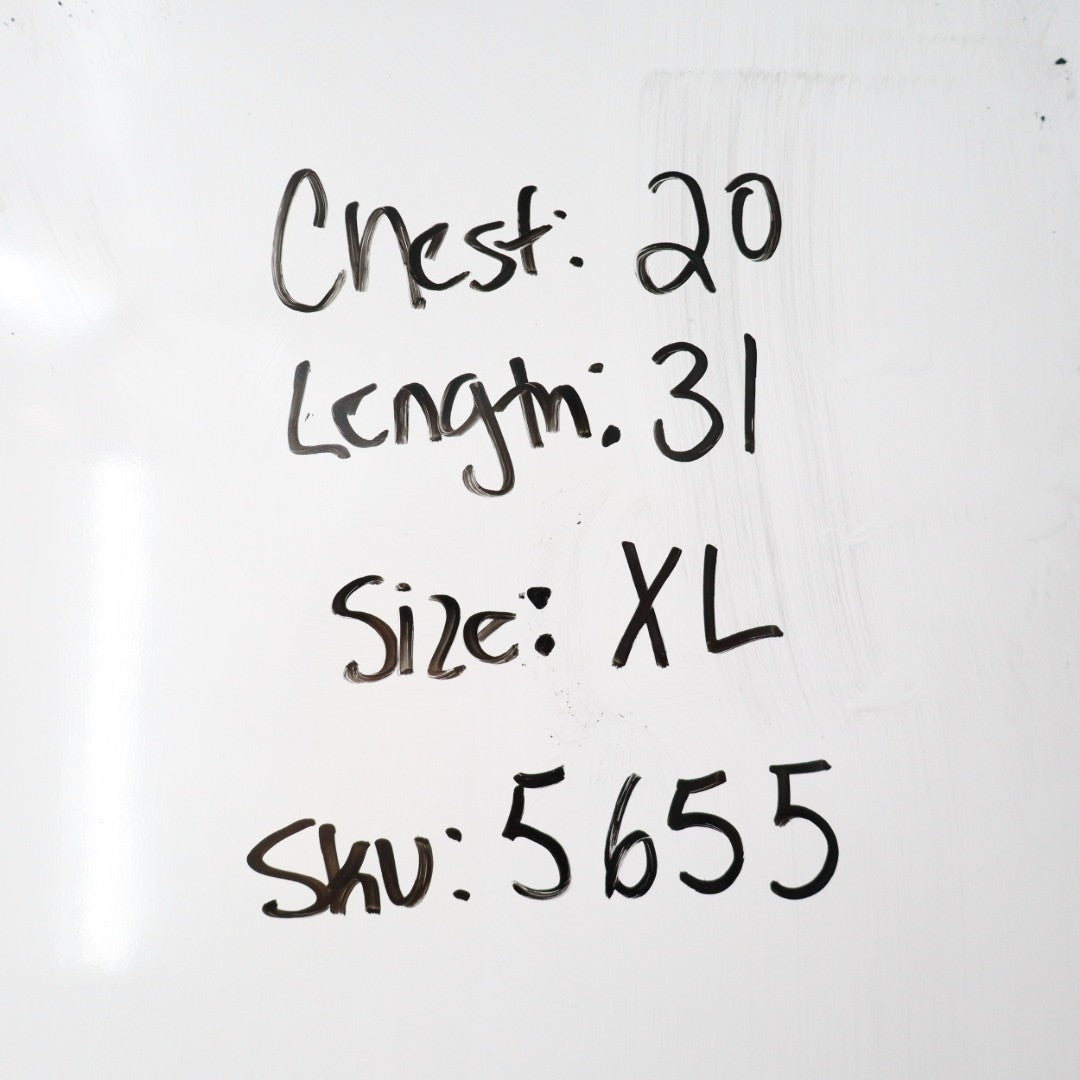 Chest: 20
Length: 31
Size: XL
Sku: 5655